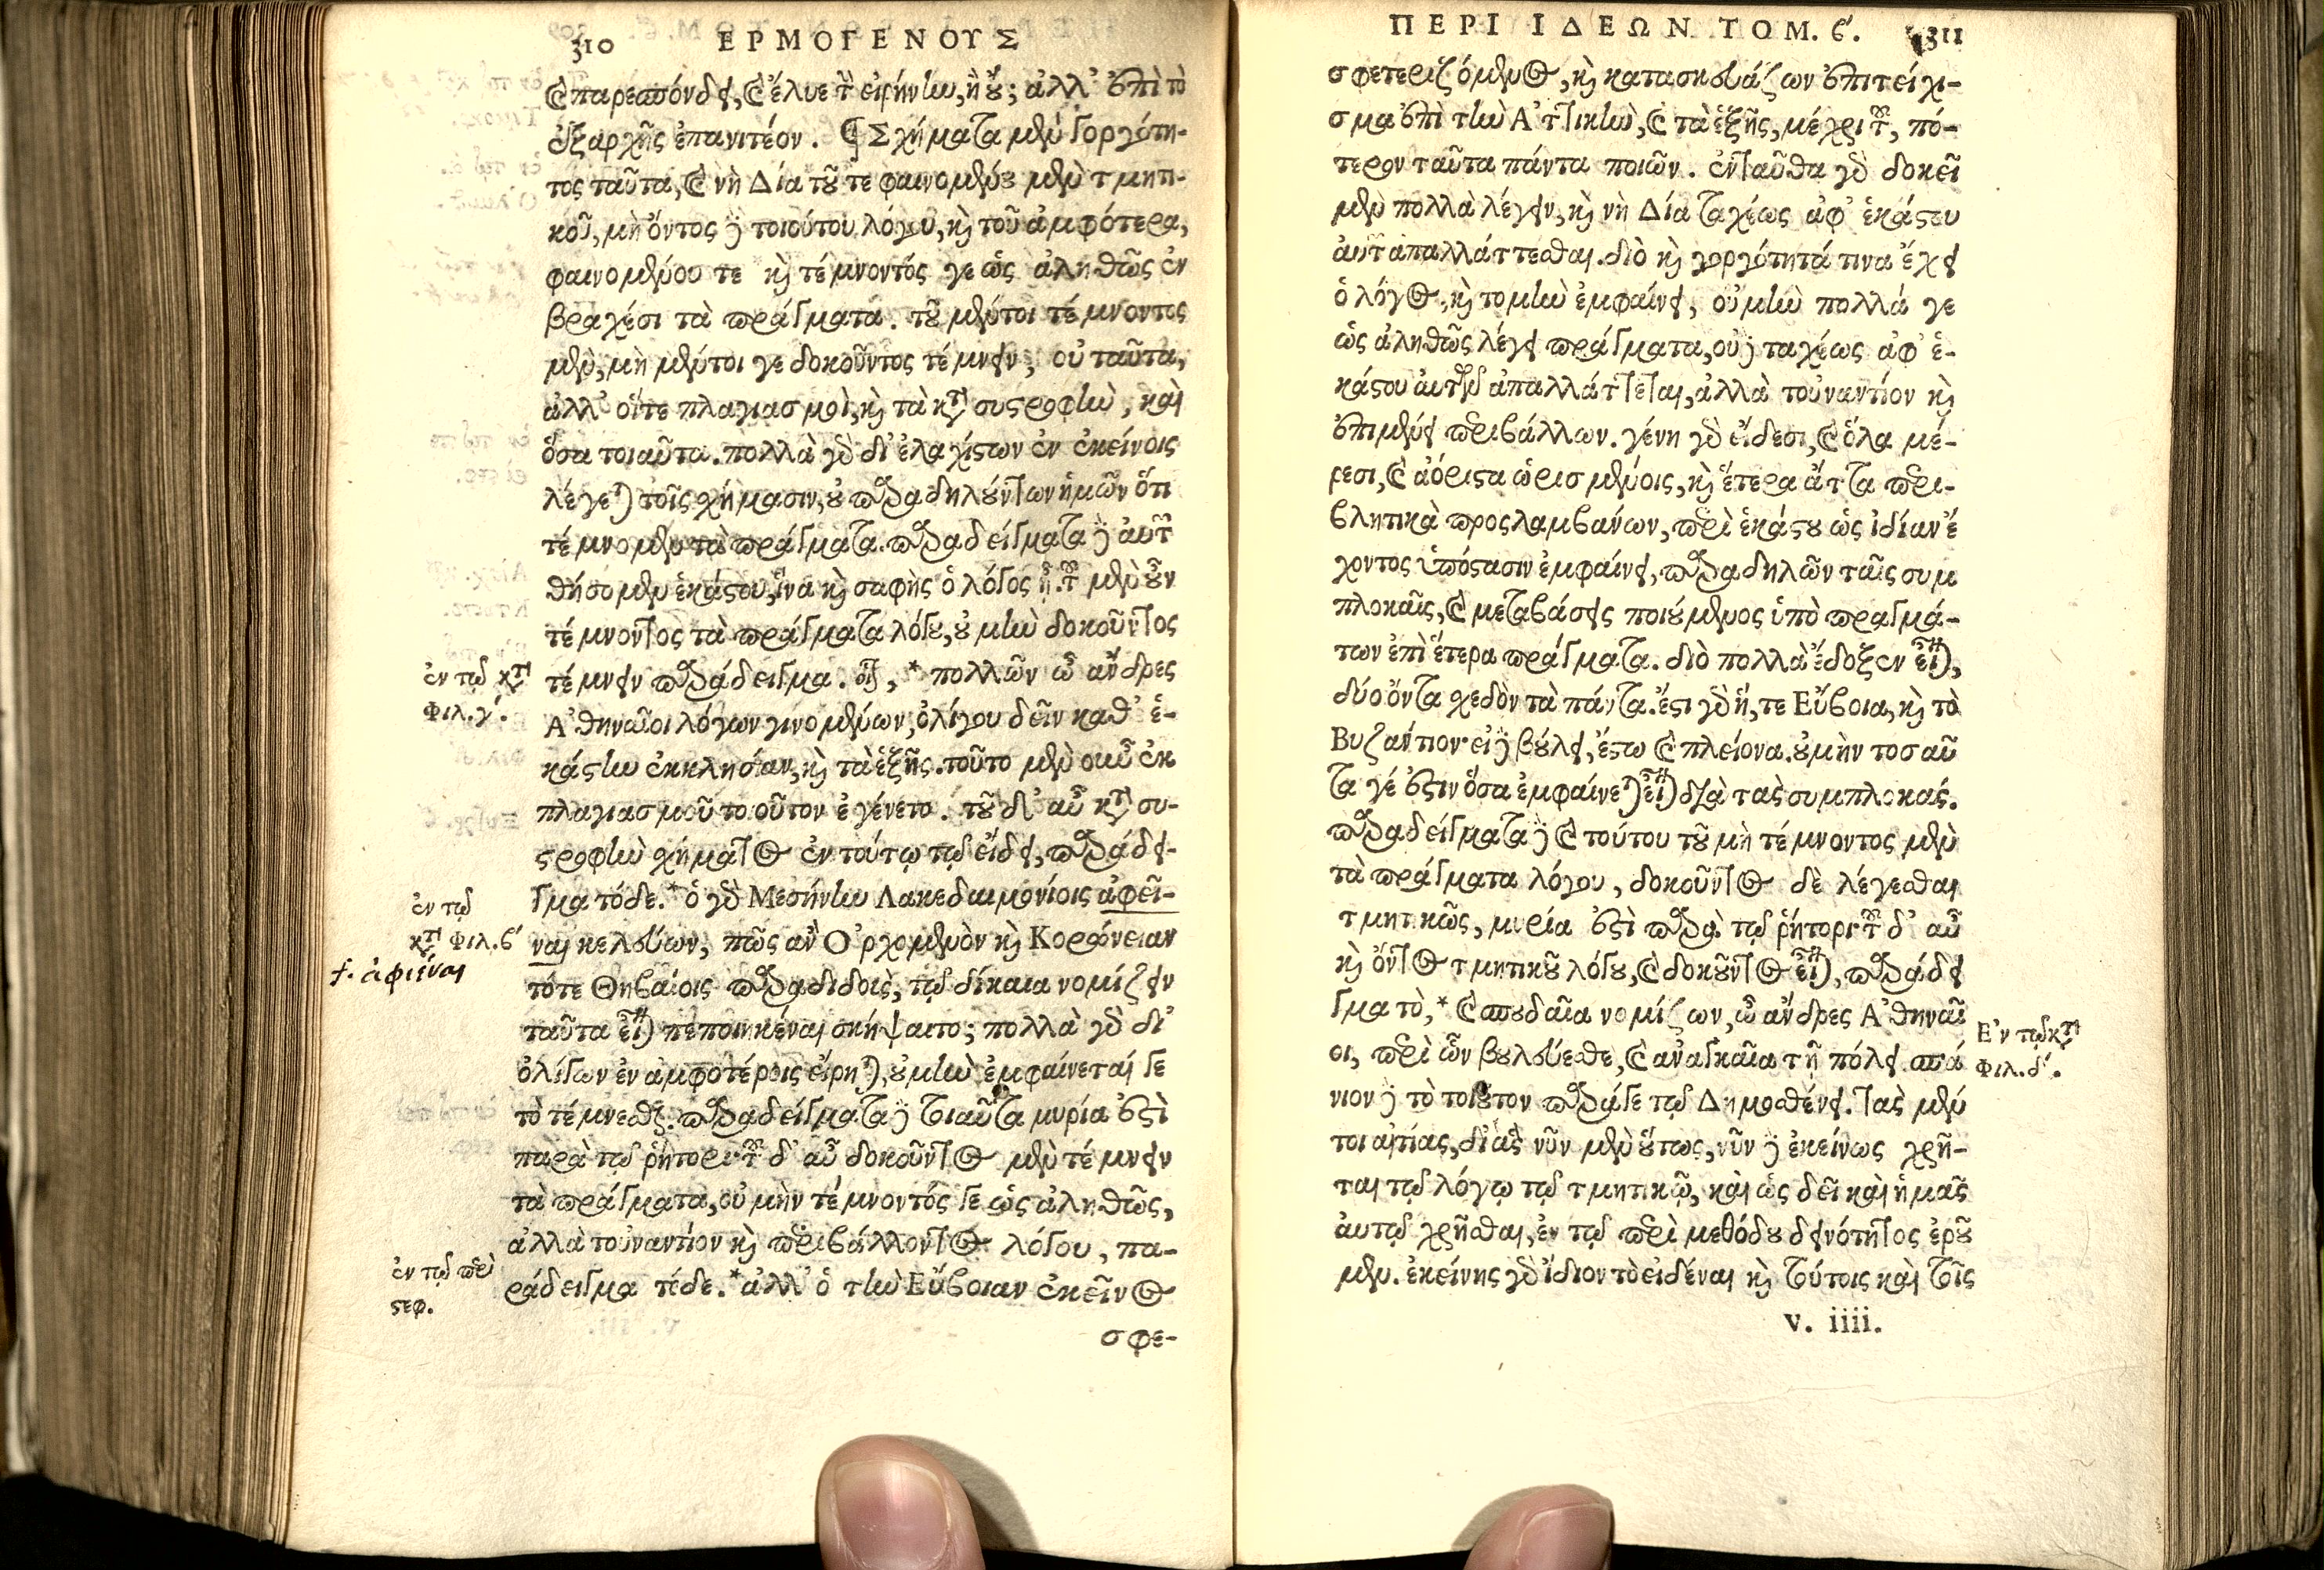 310 ΕΡΜΟΓΕΝΟΥΣ
καὶ παρεσπόνδει, καὶ ἔλυε τὴν εἰρήνην, ἢ οὔ; ἀλλ' ἐπὶ τὸ
ἐξαρχῆς ἐπανιτέον. ¶ Σχήματα μὲν γοργότη-
τος ταῦτα, καὶ νὴ Δία τοῦ τε φαινομένου μὲν τμητι-
κοῦ, μὴ ὄντος δὲ τοιούτου λόγου, καὶ τοῦ ἀμφότερα,
φαινομένου τε καὶ τέμνοντός γε ὡς ἀληθῶς ἐν
βραχέσι τὰ πράγματα. τοῦ μέντοι τέμνοντος
μὲν, μὴ μέντοι γε δοκοῦντος τέμνειν, οὐ ταῦτα,
ἀλλ' οἵ τε πλαγιασμοὶ, καὶ τὰ κατὰ συστροφὴν, καὶ
ὅσα τοιαῦτα. πολλὰ γὰρ δι' ἐλαχίστων ἐν ἐκείνοις
λέγεται τοῖς σχήμασιν, οὐ παραδηλούντων ἡμῶν ὅτι
τέμνομεν τὰ πράγματα. παραδείγματα δὲ αὐτῶν
θήσομεν ἑκάστου, ἵνα καὶ σαφὴς ὁ λόγος ᾖ. τοῦ μὲν οὖν
τέμνοντος τὰ πράγματα λόγου, οὐ μὴν δοκοῦντος
τέμνειν παράδειγμα. οἷον, * πολλῶν ὦ ἄνδρες
Ἀθηναῖοι λόγων γινομένων, ὀλίγου δεῖν καθ' ἑ-
κάστην ἐκκλησίαν, καὶ τὰ ἑξῆς. τοῦτο μὲν οὖν ἐκ
πλαγιασμοῦ τοιοῦτον ἐγένετο. τοῦ δ' αὖ κατὰ συ-
στροφὴν σχήματος ἐν ταύτῳ τῷ εἴδει, παράδει-
γμα τόδε. * ὁ γὰρ Μεσήνην Λακεδαιμονίοις ἀφεῖ-
ναι κελεύων, πῶς ἂν Ὀρχομενὸν καὶ Κορώνειαν
τότε Θηβαίοις παραδιδοὶς, τῷ δίκαια νομίζειν
ταῦτα εἶναι πεποιηκέναι σκήψαιτο; πολλὰ γὰρ δι'
ὀλίγων ἐν ἀμφοτέροις εἴρηται, οὐ μὴν ἐμφαίνεταί γε
τὸ τέμνεσθαι. παραδείγματα δὲ τοιαῦτα μυρία ἐστὶ
παρὰ τῷ ῥήτορι. τοῦ δ' αὖ δοκοῦντος μὲν τέμνειν
τὰ πράγματα, οὐ μὴν τέμνοντός γε ὡς ἀληθῶς,
ἀλλὰ τοὐναντίον καὶ περιβάλλοντος λόγου, πα-
ράδειγμα τόδε. * ἀλλ' ὁ τὴν Εὔβοιαν ἐκεῖνος
σφε-
ἐν τῷ κατὰ
Φιλ. γ'.
ἐν τῷ
κατὰ Φιλ. ϛ'
f. ἀφιέναι
ἐν τῷ περὶ
στεφ.
ΠΕΡΙ ΙΔΕΩΝ ΤΟΜ. ϛ'. 311
σφετεριζόμενος, καὶ κατασκευάζων ἐπιτείχι-
σμα ἐπὶ τὴν Ἀττικὴν, καὶ τὰ ἑξῆς, μέχρι τοῦ, πό-
τερον ταῦτα πάντα ποιῶν. ἐνταῦθα γὰρ δοκεῖ
μὲν πολλὰ λέγειν, καὶ νὴ Δία ταχέως ἀφ' ἑκάστου
αὐτῶν ἀπαλλάττεσθαι. διὸ καὶ γοργότητά τινα ἔχει
ὁ λόγος, καὶ τομὴν ἐμφαίνει, οὐ μὴν πολλά γε
ὡς ἀληθῶς λέγει πράγματα, οὐδὲ ταχέως ἀφ' ἑ-
κάστου αὐτῶν ἀπαλλάττεται, ἀλλὰ τοὐναντίον καὶ
ἐπιμένει περιβάλλων. γένη γὰρ εἴδεσι, καὶ ὅλα μέ-
ρεσι, καὶ ἀόριστα ὡρισμένοις, καὶ ἕτερα ἄττα περι-
βλητικὰ προσλαμβάνων, περὶ ἑκάστου ὡς ἰδίαν ἔ
χοντος ὑπόστασιν ἐμφαίνει, παραδηλῶν ταῖς συμ
πλοκαῖς, καὶ μεταβάσεις ποιούμενος ὑπὸ πραγμά-
των ἐπὶ ἕτερα πράγματα. διὸ πολλὰ ἔδοξεν εἶναι,
δύο ὄντα σχεδὸν τὰ πάντα. ἔστι γὰρ ἥ, τε Εὔβοια, καὶ τὸ
Βυζάντιον· εἰ δὲ βούλει, ἔστω καὶ πλείονα. οὐ μὴν τοσαῦ
τα γέ ἐστιν ὅσα ἐμφαίνεται εἶναι διὰ τὰς συμπλοκάς.
παραδείγματα δὲ καὶ τούτου τοῦ μὴ τέμνοντος μὲν
τὰ πράγματα λόγου, δοκοῦντος δὲ λέγεσθαι
τμητικῶς, μυρία ἐστὶ παρὰ τῷ ῥήτορι. τοῦ δ' αὖ
καὶ ὄντος τμητικοῦ λόγου, καὶ δοκοῦντος εἶναι, παράδει
γμα τὸ, * καὶ σπουδαῖα νομίζων, ὦ ἄνδρες Ἀθηναῖ
οι, περὶ ὧν βουλεύεσθε, καὶ ἀναγκαῖα τῇ πόλει. σπά
νιον δὲ τὸ τοιοῦτον παρά γε τῷ Δημοσθένει. τὰς μέν
τοι αἰτίας, δι' ἃς νῦν μὲν οὕτως, νῦν δὲ ἐκείνως χρῆ-
ται τῷ λόγῳ τῷ τμητικῷ, καὶ ὡς δεῖ καὶ ἡμᾶς
αὐτῷ χρῆσθαι, ἐν τῷ περὶ μεθόδου δεινότητος ἐροῦ
μεν. ἐκείνης γὰρ ἴδιον τὸ εἰδέναι καὶ τούτοις καὶ τοῖς
v. iiii.
Ἐν τῷ κατὰ
Φιλ. δ'.